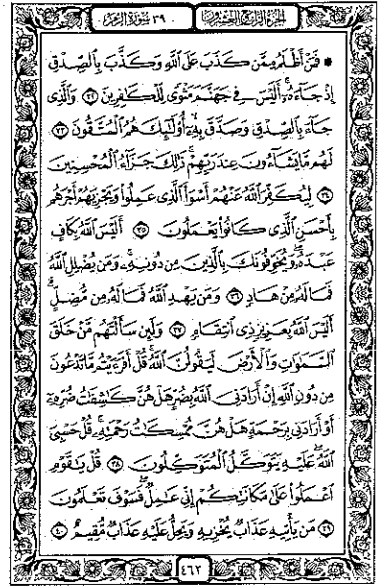 الجزء الرابع والعشرون ٣٩ سورة الزمر
۞ فَمَنْ أَظْلَمُ مِمَّن كَذَبَ عَلَى ٱللَّهِ وَكَذَّبَ بِٱلصِّدْقِ
إِذْ جَآءَهُۥٓ ۚ أَلَيْسَ فِى جَهَنَّمَ مَثْوًى لِّلْكَٰفِرِينَ ٣٢ وَٱلَّذِى
جَآءَ بِٱلصِّدْقِ وَصَدَّقَ بِهِۦٓ ۙ أُو۟لَٰٓئِكَ هُمُ ٱلْمُتَّقُونَ ٣٣
لَهُم مَّا يَشَآءُونَ عِندَ رَبِّهِمْ ۚ ذَٰلِكَ جَزَآءُ ٱلْمُحْسِنِينَ
٣٤ لِيُكَفِّرَ ٱللَّهُ عَنْهُمْ أَسْوَأَ ٱلَّذِى عَمِلُوا۟ وَيَجْزِيَهُمْ أَجْرَهُم
بِأَحْسَنِ ٱلَّذِى كَانُوا۟ يَعْمَلُونَ ٣٥ أَلَيْسَ ٱللَّهُ بِكَافٍ
عَبْدَهُۥ ۖ وَيُخَوِّفُونَكَ بِٱلَّذِينَ مِن دُونِهِۦ ۚ وَمَن يُضْلِلِ ٱللَّهُ
فَمَا لَهُۥ مِنْ هَادٍ ٣٦ وَمَن يَهْدِ ٱللَّهُ فَمَا لَهُۥ مِن مُّضِلٍّ ۗ
أَلَيْسَ ٱللَّهُ بِعَزِيزٍ ذِى ٱنتِقَامٍ ٣٧ وَلَئِن سَأَلْتَهُم مَّنْ خَلَقَ
ٱلسَّمَٰوَٰتِ وَٱلْأَرْضَ لَيَقُولُنَّ ٱللَّهُ ۚ قُلْ أَفَرَءَيْتُم مَّا تَدْعُونَ
مِن دُونِ ٱللَّهِ إِنْ أَرَادَنِىَ ٱللَّهُ بِضُرٍّ هَلْ هُنَّ كَٰشِفَٰتُ ضُرِّهِۦٓ
أَوْ أَرَادَنِى بِرَحْمَةٍ هَلْ هُنَّ مُمْسِكَٰتُ رَحْمَتِهِۦ ۚ قُلْ حَسْبِىَ
ٱللَّهُ ۖ عَلَيْهِ يَتَوَكَّلُ ٱلْمُتَوَكِّلُونَ ٣٨ قُلْ يَٰقَوْمِ
ٱعْمَلُوا۟ عَلَىٰ مَكَانَتِكُمْ إِنِّى عَٰمِلٌ ۖ فَسَوْفَ تَعْلَمُونَ
٣٩ مَن يَأْتِيهِ عَذَابٌ يُخْزِيهِ وَيَحِلُّ عَلَيْهِ عَذَابٌ مُّقِيمٌ ٤٠
٤٦٢